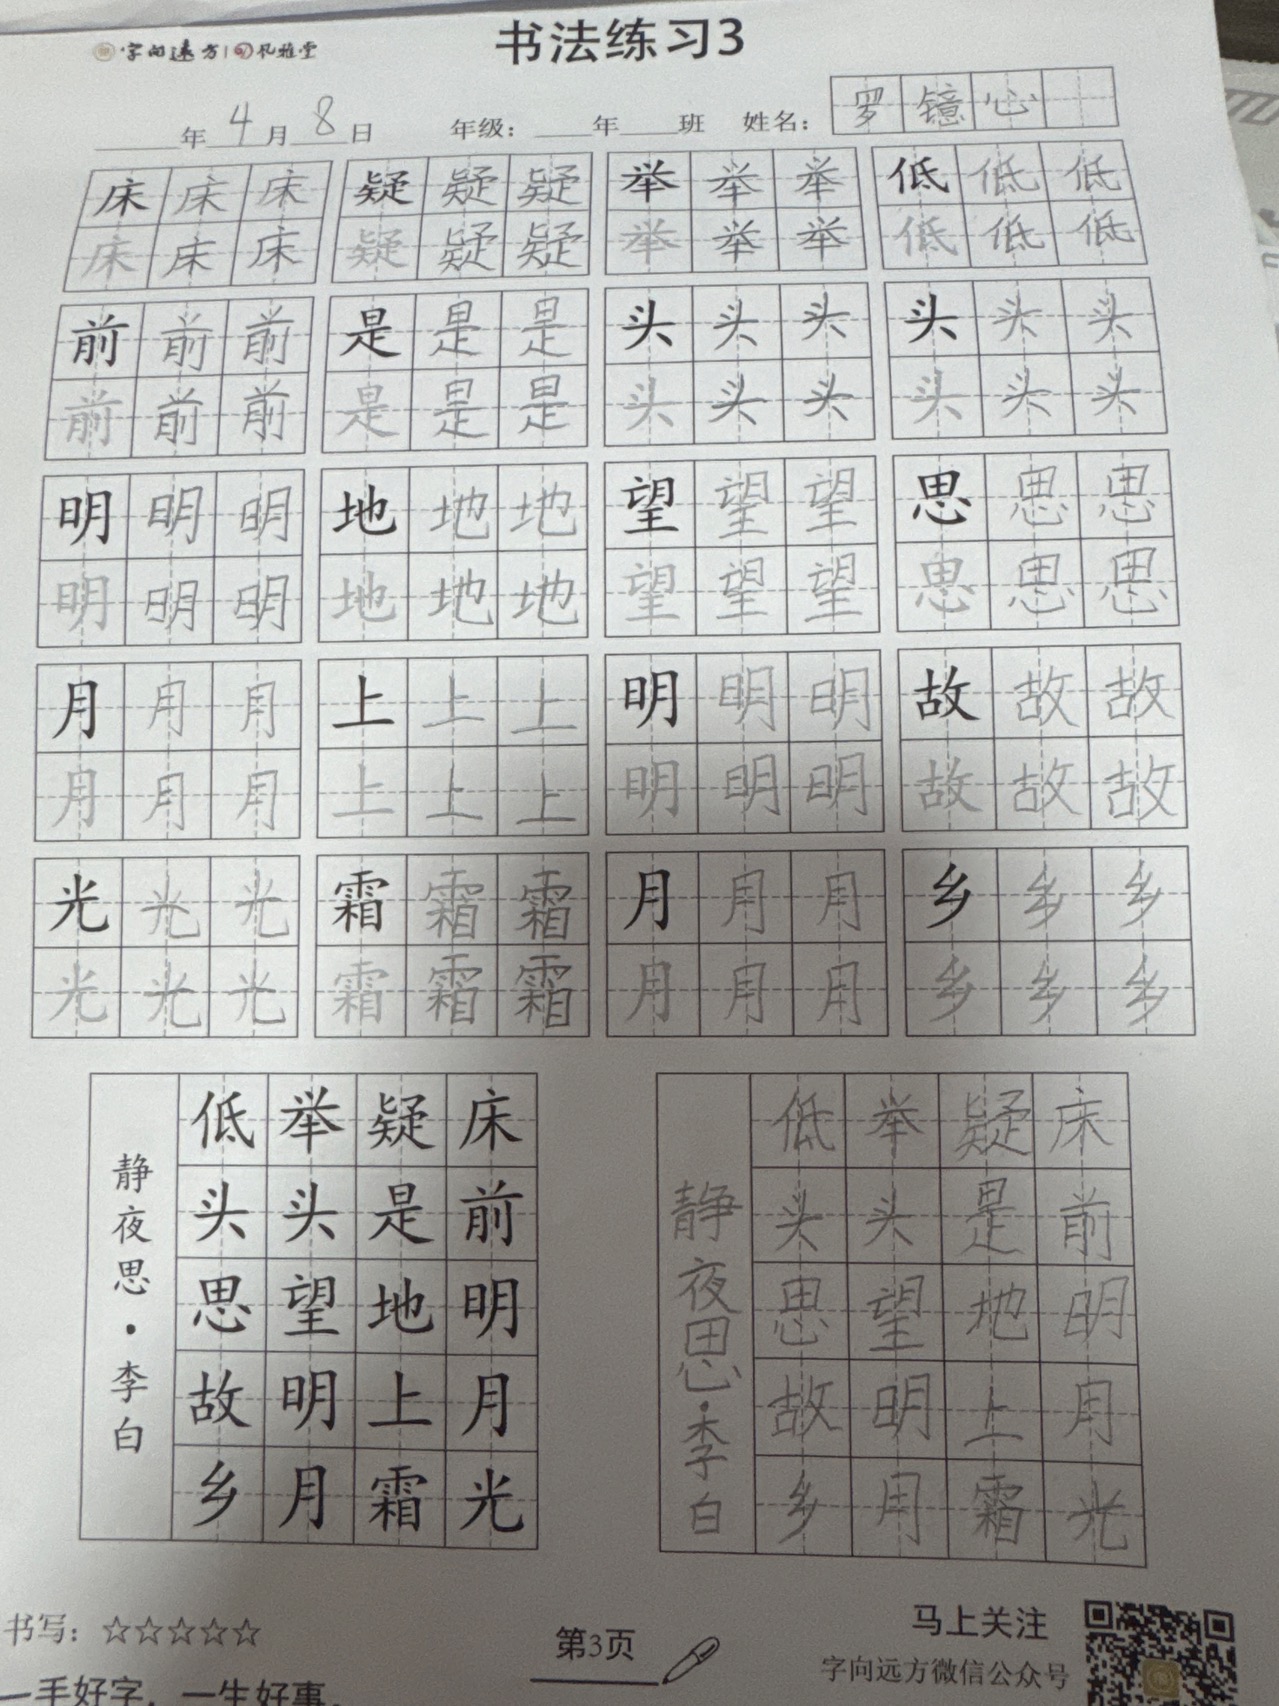 字向远方 | 风雅堂
书法练习3
年4月8日 年级：年班 姓名：罗镜心
床床床 疑疑疑 举举举 低低低
床床床 疑疑疑 举举举 低低低
前前前 是是是 头头头 头头头
前前前 是是是 头头头 头头头
明明明 地地地 望望望 思思思
明明明 地地地 望望望 思思思
月月月 上上上 明明明 故故故
月月月 上上上 明明明 故故故
光光光 霜霜霜 月月月 乡乡乡
光光光 霜霜霜 月月月 乡乡乡
床前明月光
疑是地上霜
举头望明月
低头思故乡
静夜思·李白
床前明月光
疑是地上霜
举头望明月
低头思故乡
静夜思·李白
书写：☆☆☆☆☆
一手好字，一生好事。
第3页
马上关注
字向远方微信公众号